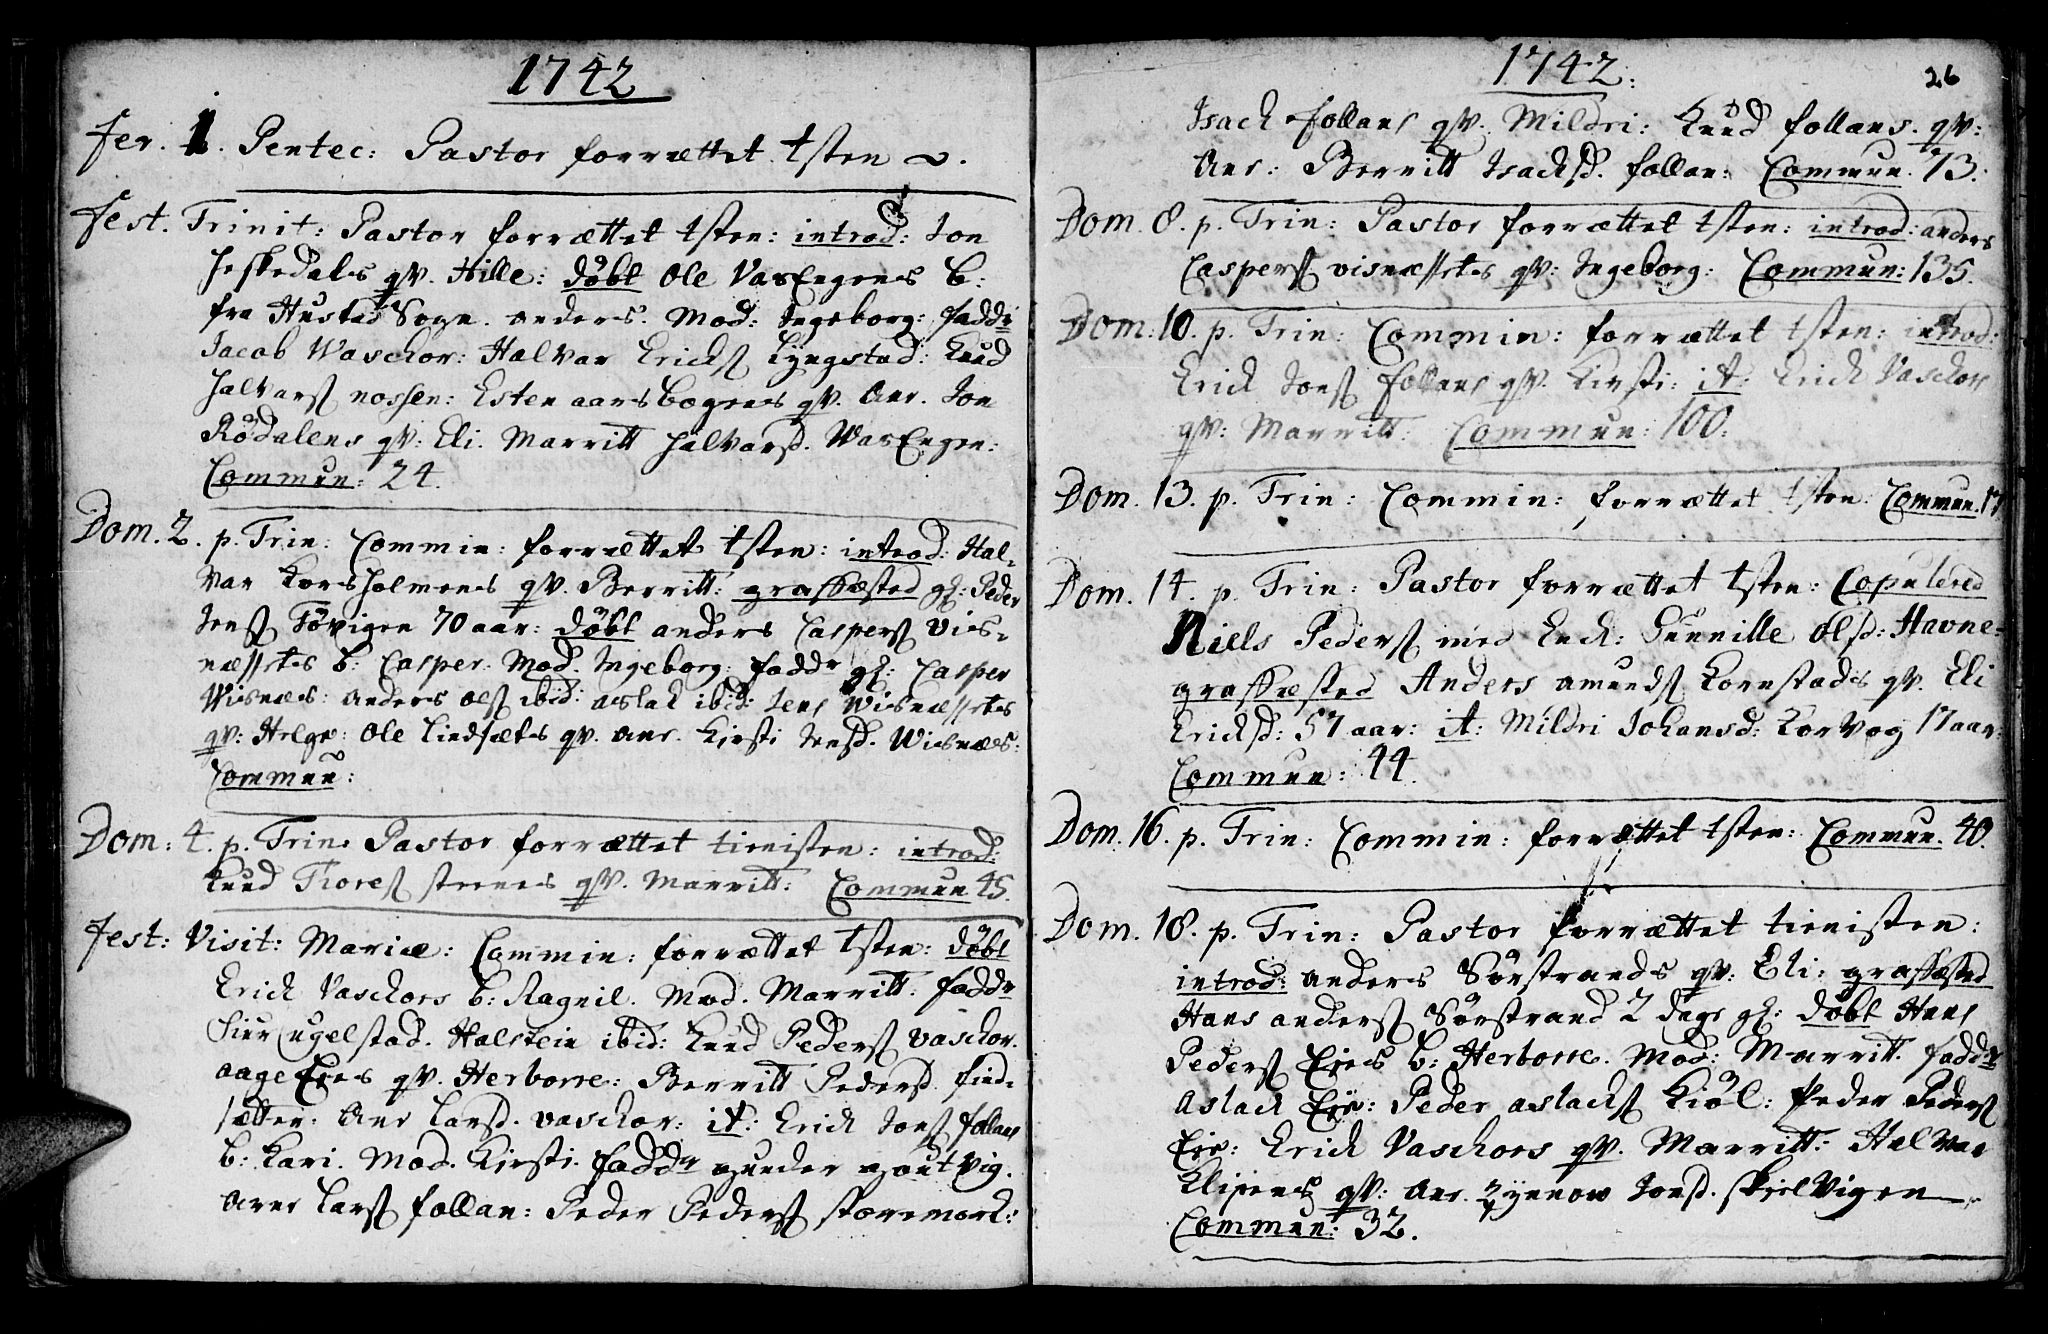 1742
Fer. 1. Pentec: Pastor forrættet tsten
Fest. Trinit: Pastor forrættet tsten: introd: Jon
Heskedals qv. Hille: døbt Ole VasEngens b:
fra Hustad Sogn. anders. Mod: Ingeborg: faddr
Jacob Waschor: Halvar Ericks. Lyngstad: Knud
Halvars. nossen: Esten aarsbogens qv. Ane. Jon
Rødalens qv: Eli. Marritt Halvarsd. WasEngen:
Commun: 24.
Dom. 2. p. Trin: Commin: forrættet tsten: introd: Hal-
var Korsholmens qv. Berritt: graffæsted gl: Peder
Jens. Tøvigen 70 aar: døbt anders Caspers. Vis-
næssets b: Casper. Mod. Ingeborg: faddr gl: Casper
Wisnæs: anders ols. ibid: aslak ibid: Jens Wisnæssets
qv: Helge: Ole Lindsæts qv. Ane. Kirsti Jensd. Wisnæs:
Commun:
Dom: 4. p. Trin. Pastor forrættet tienisten: introd:
Knud Thores. steenes qv. Marritt: Commun 45.
Fest: Visit: Mariæ: Commin: forrættet tsten: døbt
Erick Vaschors b: Ragnil. Mod. Marritt. faddr
Siur ugelstad. Halstein ibid: Knud Peders. vaschor.
aage Eies qv. Herborre: Berritt Pedersd. find-
sætter: Ane Larsd. vaschor: it: Erick Jons. follans
b: Kari. Mod. Kirsti. faddr gunder goutvig.
Arne Lars. follan: Peder Peders. storemork:
1742.
26
Isack follans qv. Mildri: Knud follans. qv:
Ane: Berritt Isacksd. follan: Commun. 73.
Dom. 8. p. Trin: Pastor forrættet tsten: introd: anders
Caspers. visnæssets qv: Ingeborg: Commun: 135.
Dom: 10. p. Trin: Commin: forrættet tsten: introd:
Erick Jons. follans qv. Kirsti: it: Erick Vaschors
qv: Marritt: Commun: 100.
Dom. 13. p. Trin: Commin: forrættet tsten: Commun. 17
Dom. 14. p. Trin: Pastor forrættet tsten: Copulered
Niels Peders. med Enck: Gunnille Olsd: Havne-
graffæsted Anders amunds. Kornstads qv. Eli
Ericksd: 57 aar: it: Mildri Johansd: Korvog 17 aar:
Commun: 44.
Dom. 16. p. Trin: Commin: forrættet tsten: Commun. 40.
Dom. 18. p. Trin: Pastor forrættet tienisten:
introd: anders Sørstrands qv: Eli: graffæsted
Hans anders. Sørstrand 2 dage gl: døbt Hans
Peders. Eies b: Herborre. Mod: Marritt. faddr
Aslack Eie: Peder aslacks. Kiøl: Peder Peders.
Eie: Erick Vaschors qv. Marritt: Halvar
Klipens qv: Ane. Synnow Jonsd. skielvigen
Commun: 32.